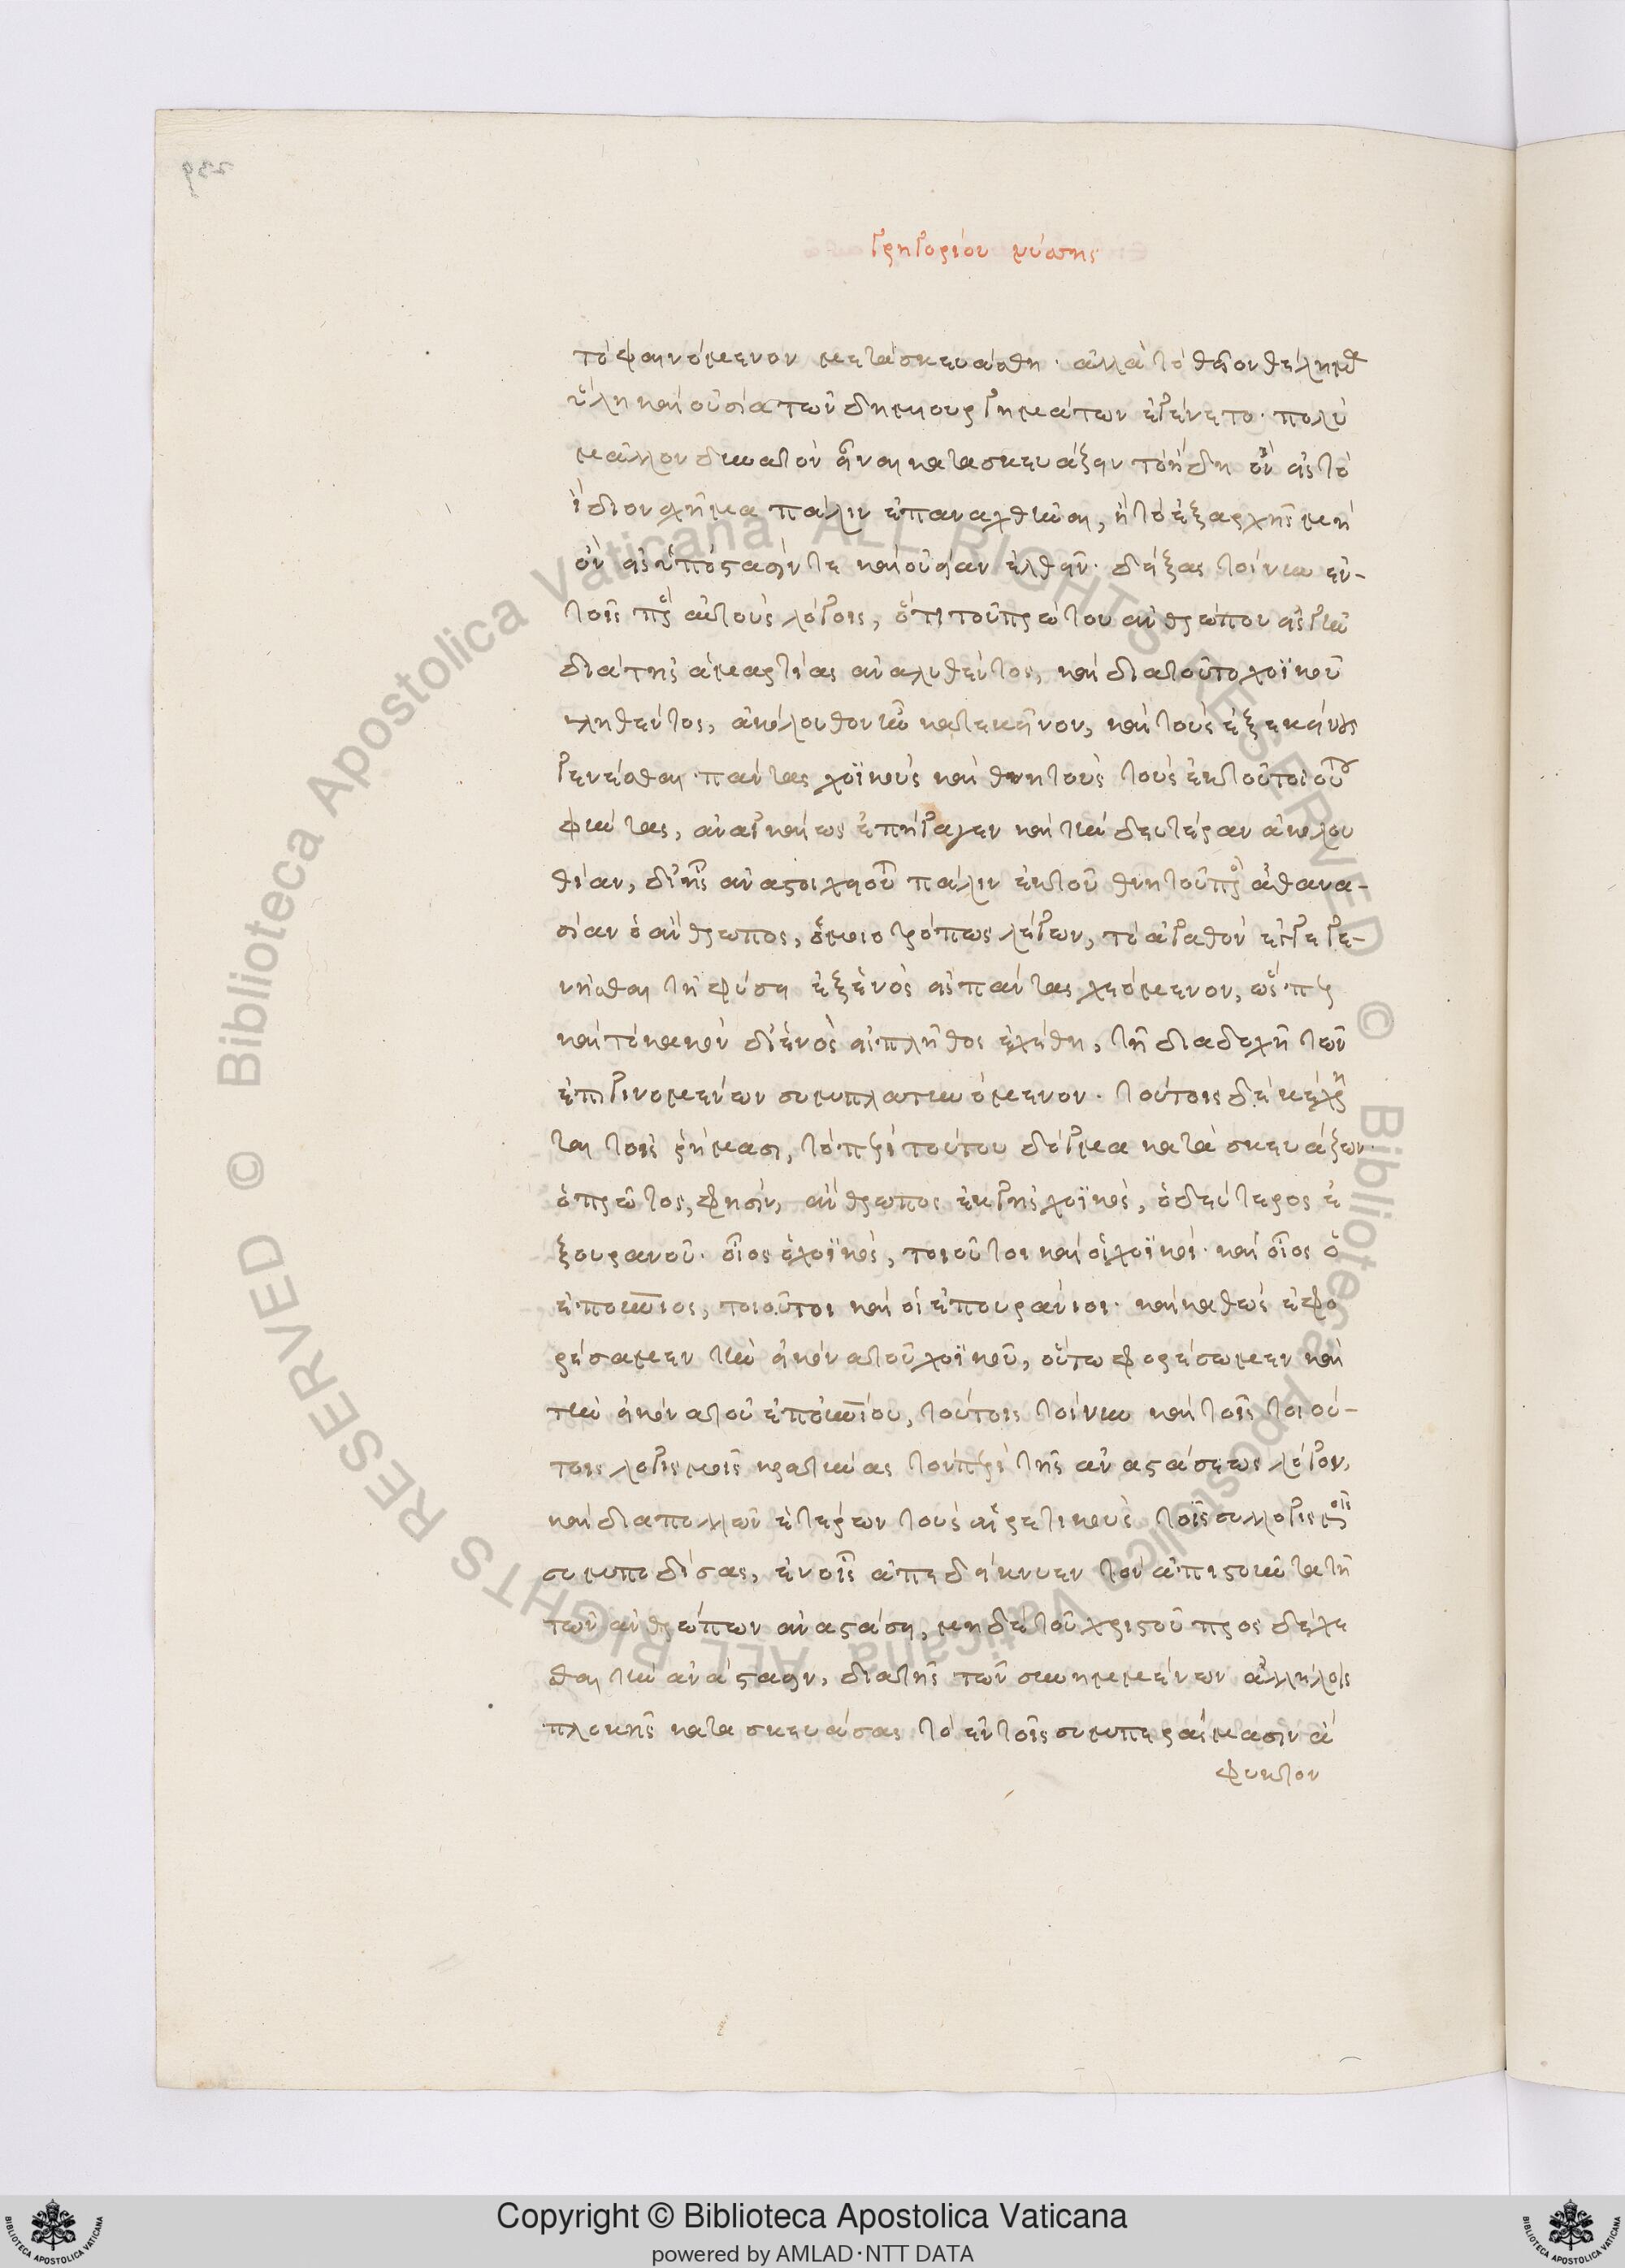 γρηγορίου νύσσης
τὸ φαινόμενον μετασκευάσθη· ἀλλὰ τὸ θεῖον θέλημα
ὕλη καὶ οὐσία τῶν δημιουργημάτων ἐγένετο· πολὺ
μᾶλλον δυνατὸν εἶναι κατασκευάζειν τὸ ἤδη ὂν εἰς τὸ
ἴδιον σχῆμα πάλιν ἐπαναχθῆναι, ἢ τὸ ἐξαρχῆς μὴ
ὂν εἰς ὑπόστασίν τε καὶ οὐσίαν ἐλθεῖν· δείξας τοίνυν ἐν-
τοῖς πρὸς αὐτοὺς λόγοις, ὅτι τοῦ πρώτου ἀνθρώπου εἰς γῆν
διὰ τῆς ἁμαρτίας ἀναλυθέντος, καὶ διατοῦτο χοϊκοῦ
κληθέντος, ἀκόλουθον ἦν κατεκεῖνον, καὶ τοὺς ἐξ ἐκείνου
γενέσθαι πάντας χοϊκοὺς καὶ θνητοὺς τοὺς ἐκ τοῦ τοιούτου
φύντας, ἀναγκαίως ἐπήγαγεν καὶ τὴν δευτέραν ἀκολου
θίαν, δι' ἧς ἀναστοιχειοῦται πάλιν ἐκ τοῦ θνητοῦ πρὸς ἀθανα-
σίαν ὁ ἄνθρωπος, ὁμοιοτρόπως λέγων, τὸ ἀγαθὸν ἐγγεγε-
νῆσθαι τῇ φύσει ἐξ ἑνὸς εἰς πάντας χεόμενον, ὥσπερ
καὶ τὸ κακὸν δι' ἑνὸς εἰς πλῆθος ἐχέθη, τῇ διαδοχῇ τῶν
ἐπιγινομένων συμπλατυνόμενον· τούτοις δὲ κέχρη
ται τοῖς ῥήμασι, τὸ περὶ τούτου δόγμα κατασκευάζων
ὁ πρῶτος, φησὶν, ἄνθρωπος ἐκ γῆς χοϊκός, ὁ δεύτερος ἐ
ξ οὐρανοῦ· οἷος ὁ χοϊκός, τοιοῦτοι καὶ οἱ χοϊκοί· καὶ οἷος ὁ
ἐπουνιος, τοιοῦτοι καὶ οἱ ἐπουράνιοι· καὶ καθὼς ἐφο
ρέσαμεν τὴν εἰκόνα τοῦ χοϊκοῦ, οὕτω φορέσωμεν καὶ
τὴν εἰκόνα τοῦ ἐπουνίου, τούτοις τοίνυν καὶ τοῖς τοιού-
τοις λογισμοῖς κρατύνας τὸν περὶ τῆς ἀναστάσεως λόγον,
καὶ διαπολλῶν ἑτέρων τοὺς αἱρετικοὺς τοῖς συλλογισμοῖς
συμποδίσας, ἐν οἷς ἀπεδείκνυεν τὸν ἀπιστοῦντα τῇ
τῶν ἀνθρώπων ἀναστάσει, μηδὲ τοῦ χριστοῦ προσδέχε
σθαι τὴν ἀνάστασιν, διὰ τῆς τῶν συνημμένων ἀλλήλοις
πλοκῆς κατασκευάσας τὸ ἐν τοῖς συμπεράσμασιν ἄ
φυκτον
Copyright © Biblioteca Apostolica Vaticana
powered by AMLAD·NTT DATA